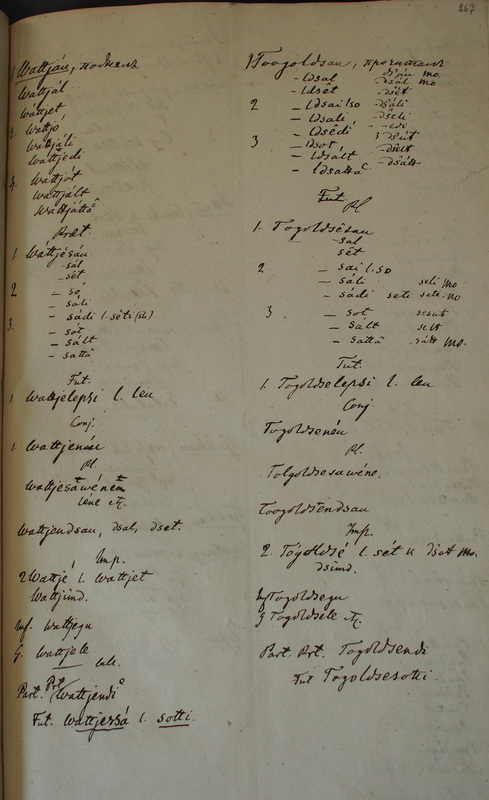 267
1 Wattján, поднялъ
Wattjál
Wattjet
2. Wattjó
Wattjáli
Wattjedi
3. Wattjót
Wattjált
Wattjátta
Præt.
1 Wáttjesán
-sál
-sét
2 - só
- sáli
- sádi l. séti (sk)
3. - sót
- sált
- satta
Fut.
1 Wattjelepsi l. leu
Conj.
1 Wattjenán
Pl.
Wattjesawénem
léne
Wattjendsau, dsal, dset.
Imp.
2 Wattjé l. Wattjet
Wattjind.
Inf. Wattjegu
G. Wattjele
lale.
Part. Prt. Wattjendi
Fut. Wattjersá l. sotti.
1 Toogoldsau, прочиталъ
- ldsal dsál mo
- ldsét dsét
2 - ldsai l so dsáli
- ldsali dséli
- ldsédi edi
3 - ldsot dsút
- ldsált dsélt
- ldsatta dsált
Fut.
Pl
1. Togoldsésau
- sal
sét
2 - sai l. so
- sáli seli mo
- sádi seti sete mo
3. - sot sesut
- sált selt
- sattá sált mo.
Fut.
1. Togoldselepsi l. leu
Conj
Togoldsenéu
Pl.
Tolgoldsesawéne.
Toogoldsendsau
Imp.
2. Togoldsé l. sét u dset mo.
dsimd.
Inf Togoldsegu
G Togoldséle
Part. Prt. Togoldsendi
Fut Togoldsesotti.